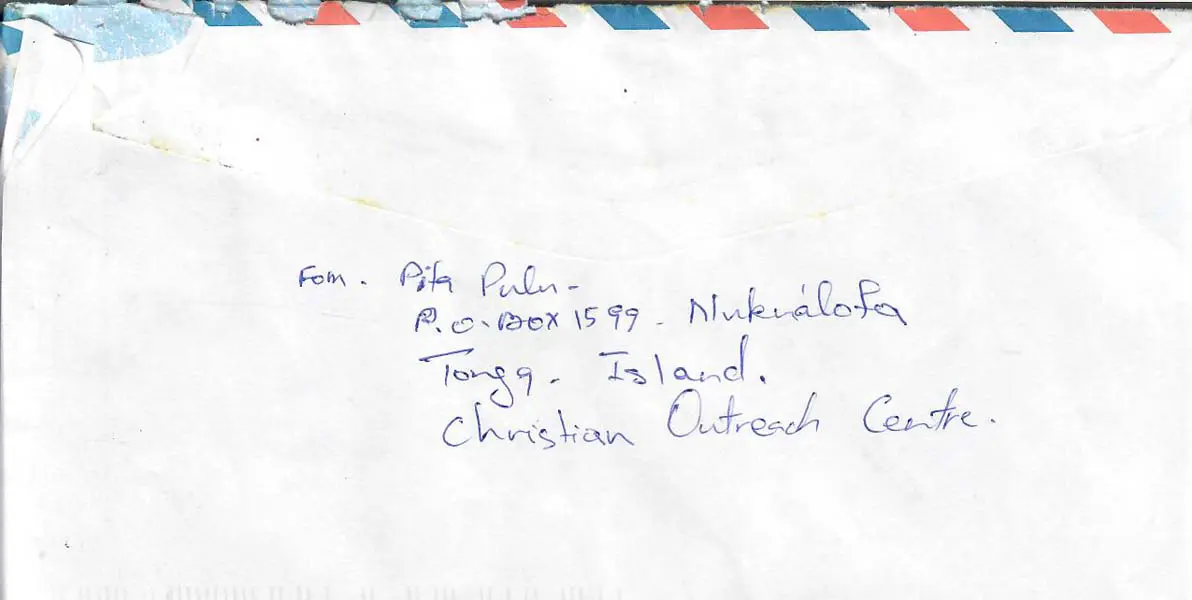 Fom. Pita Pulu-
P.O. Box 1599 - Nukuálofa
Tonga - Island.
Christian Outreach Centre.